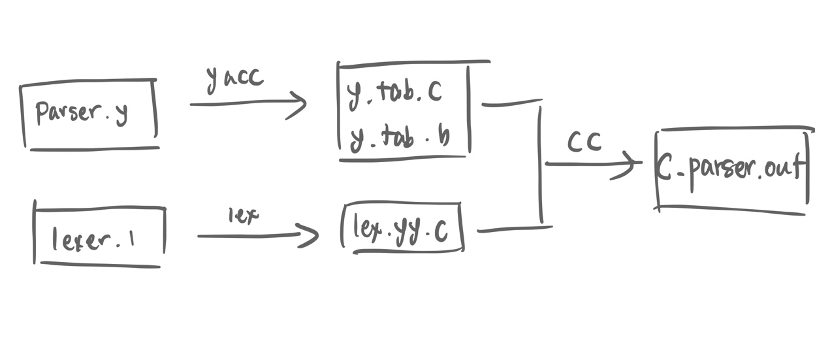 Parser.y
yacc
y.tab.c
y.tab.h
lexer.l
lex
lex.yy.c
CC
C-parser.out